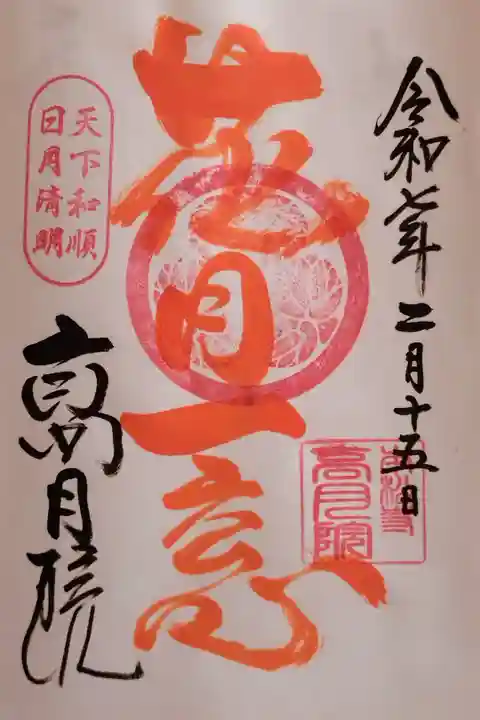 令和七年二月十五日
花月一意
天下和順
日月清明
高月院
高月院